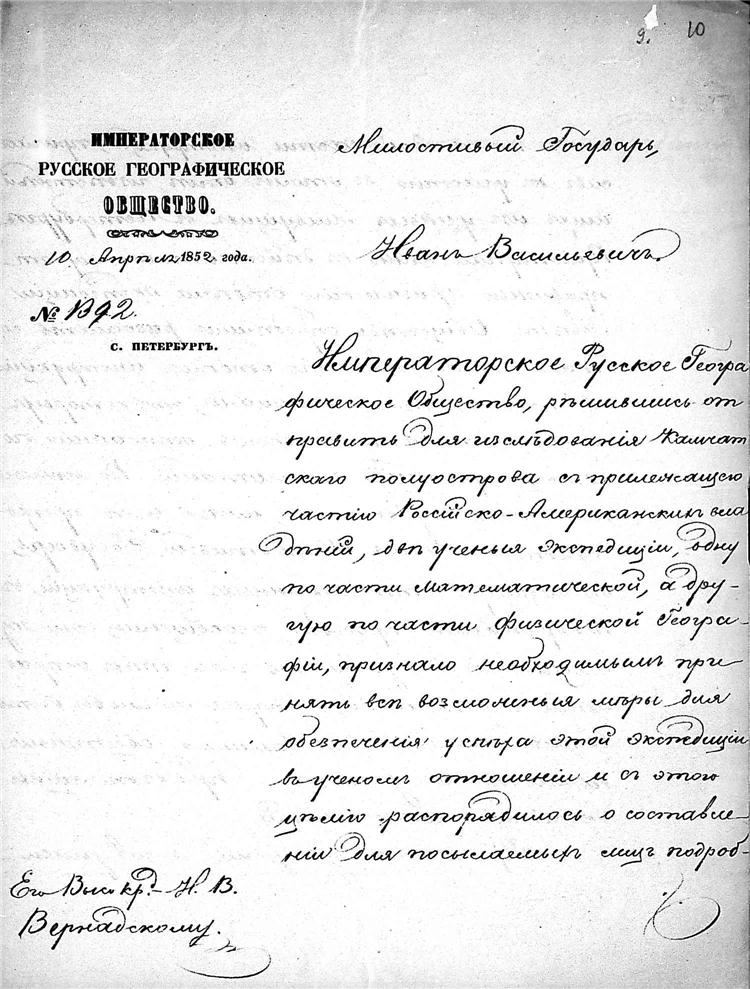 9. 10
ИМПЕРАТОРСКОЕ
РУССКОЕ ГЕОГРАФИЧЕСКОЕ
ОБЩЕСТВО.
10. Апрѣля 1852 года.
№ 1392.
С. ПЕТЕРБУРГЪ.
Милостивый Государь,
Иванъ Васильевичъ.
Императорское Русское Геогра
фическое Общество, рѣшившись от
править для изслѣдованія Камчат
скаго полуострова съ прилежащею
частію Россійско-Американскихъ вла
дѣній, двѣ ученыя экспедиціи, одну
по части математической, а дру-
гую по части физической Геогра-
фіи, признало необходимымъ при
нять всѣ возможныя мѣры для
обезпеченія успѣха этой экспедиціи
въ ученомъ отношеніи и съ этого
цѣлію распорядилось о составле
ніи для посылаемыхъ лицъ подроб-
Его Выскр. И. В.
Вернадскому.